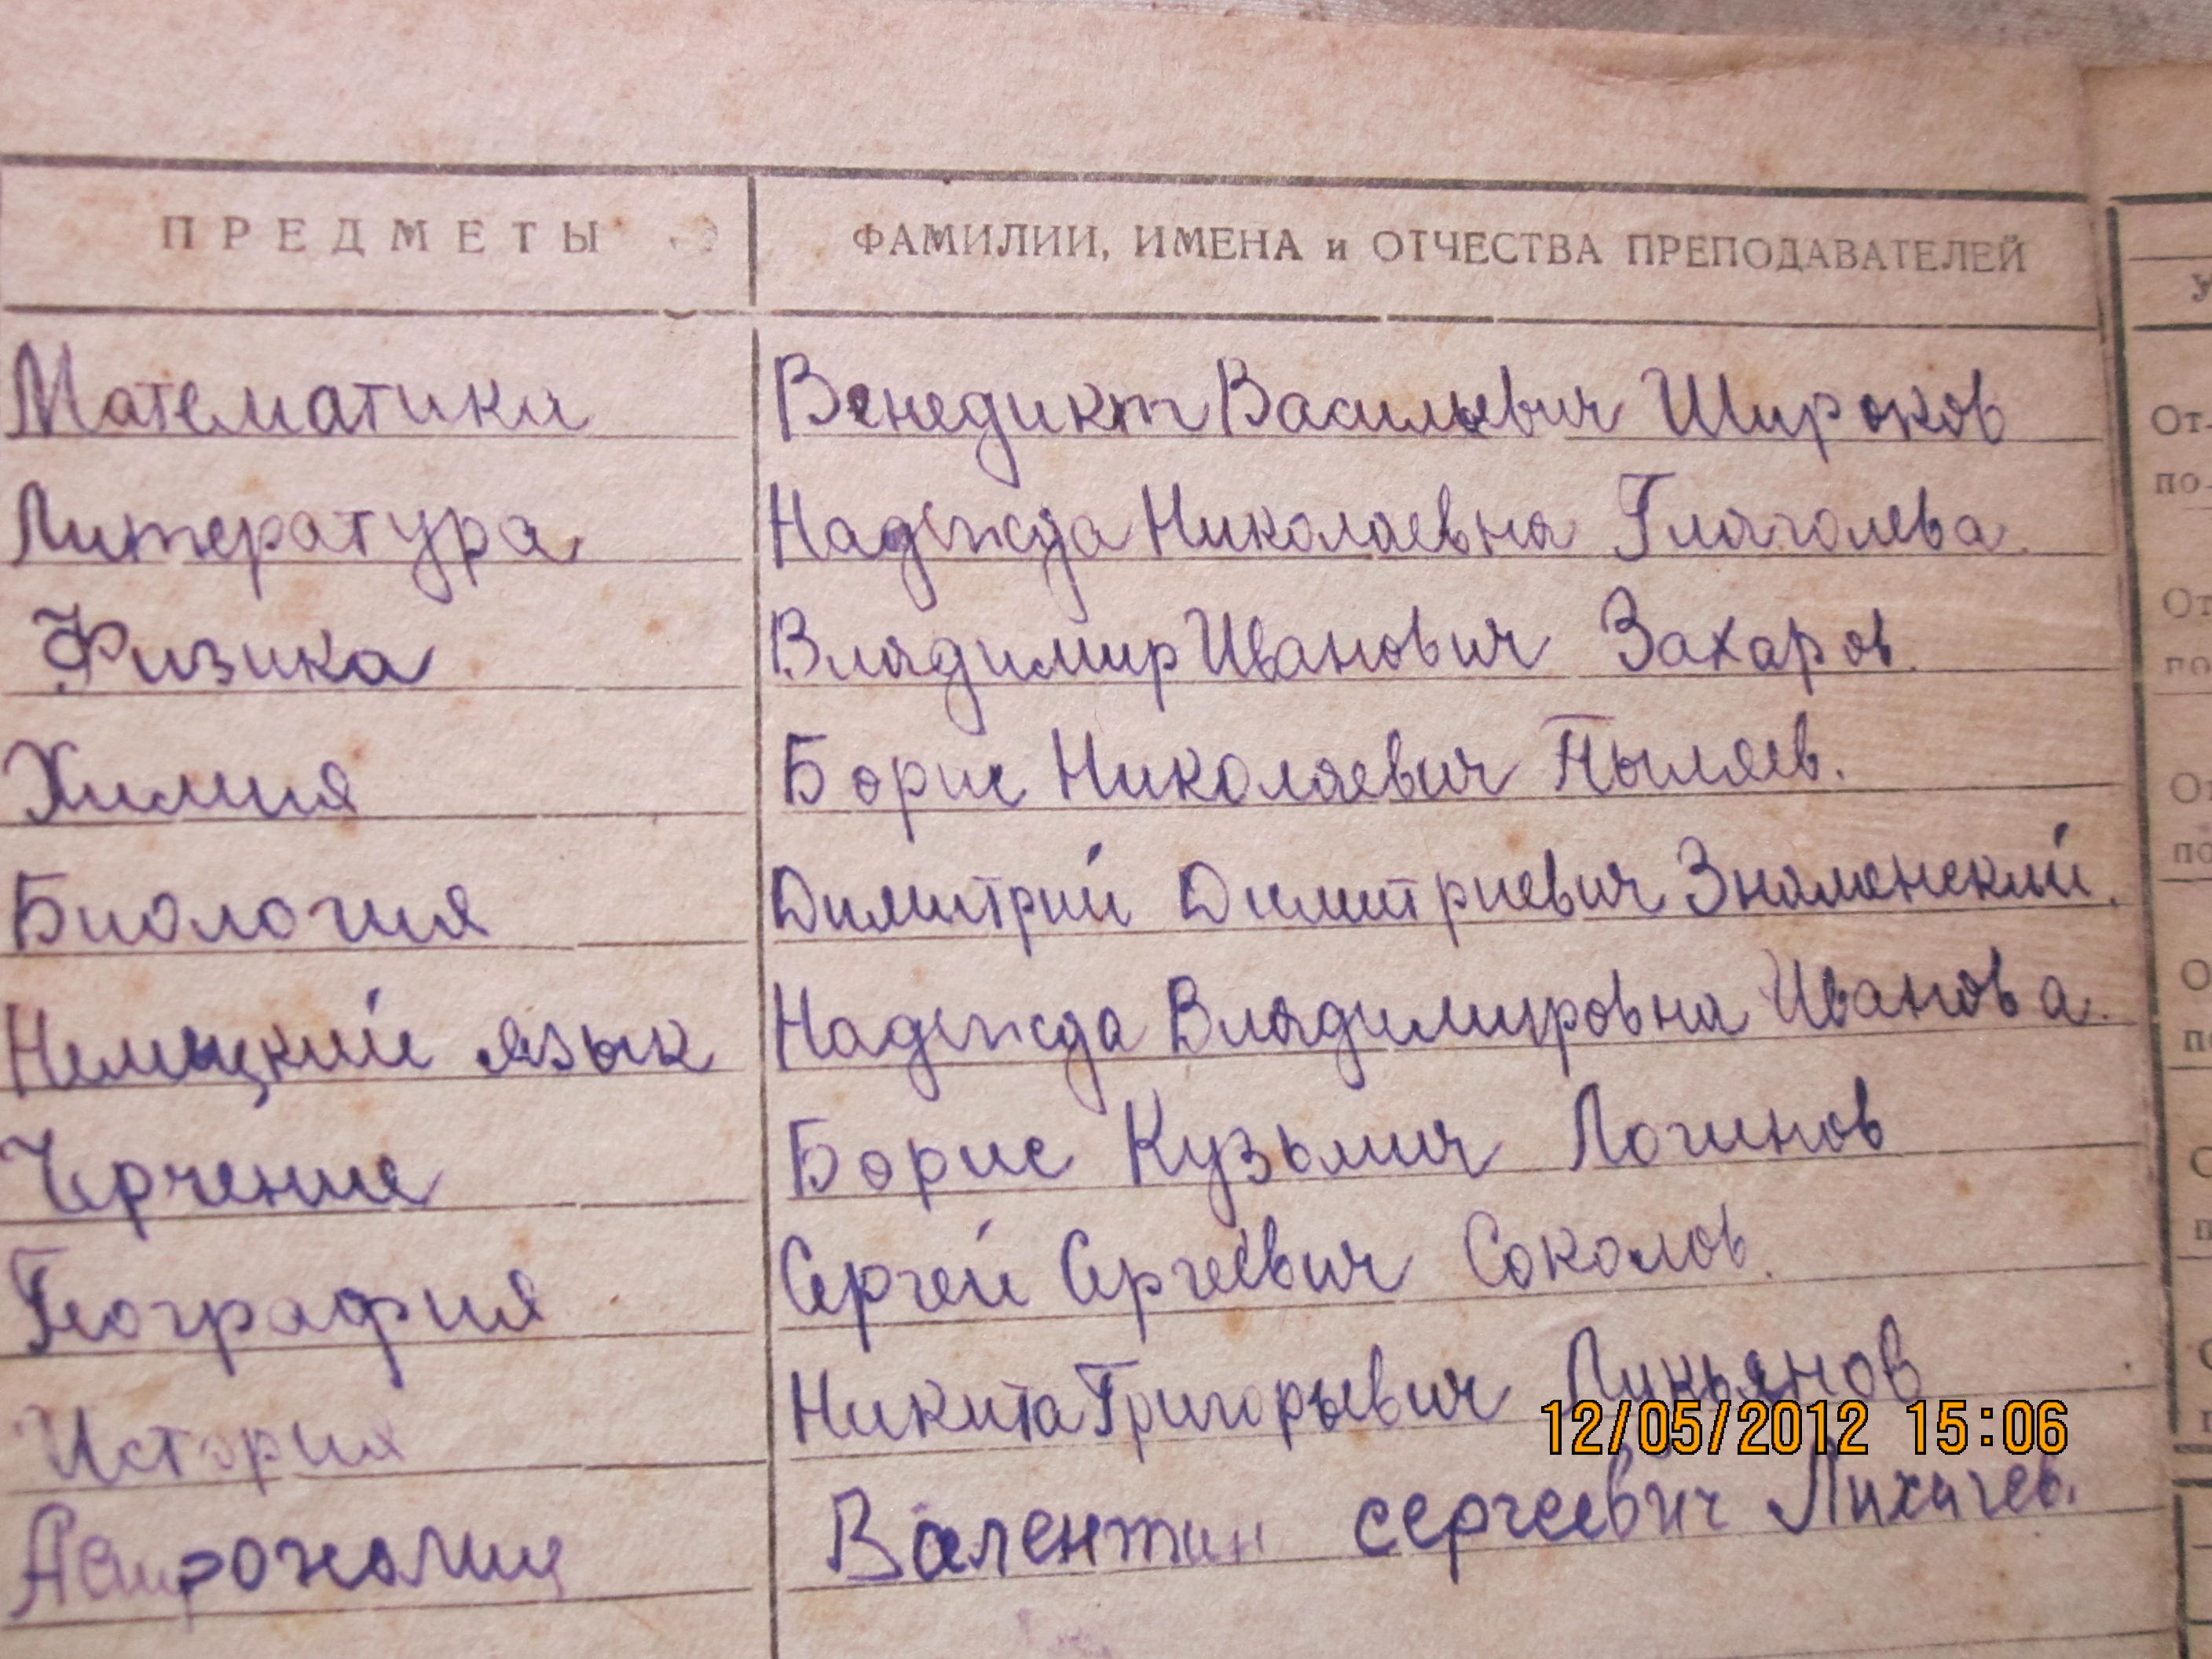 ПРЕДМЕТЫ ФАМИЛИИ, ИМЕНА и ОТЧЕСТВА ПРЕПОДАВАТЕЛЕЙ
Математика Венедикт Васильевич Широков
Литература Надежда Николаевна Глаголева.
Физика Владимир Иванович Захаров.
Химия Борис Николаевич Пыляев.
Биология Димитрий Димитриевич Знаменский.
Немецкий язык Надежда Владимировна Иванова.
Черчение Борис Кузьмич Логинов
География Сергей Сергеевич Соколов.
История Никита Григорьевич Лукьянов
12/05/2012 15:06
Астрономия Валентин сергеевич Лихачев.